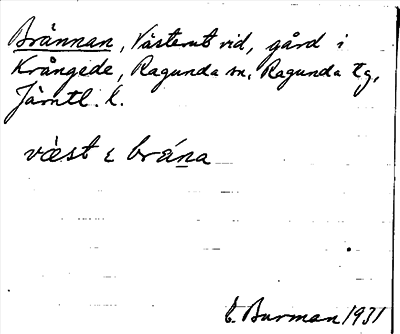 Brännan, Västerut vid, gård i
Krångede, Ragunda sn, Ragunda tg,
Jämtl. l.
väst ɛ bräna
E. Burman 1931